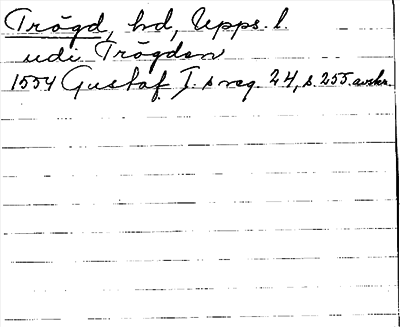 Trögd, hd, Upps. l.
udi Trögden
1554 Gustaf I:s reg. 24, s. 255. avskr.